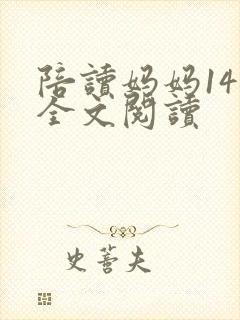 陪讀媽媽14
全文閱讀
史蒼夫